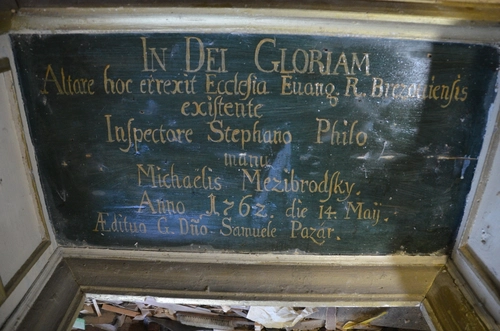 IN DEI GLORIAM
Altare hoc errexit Ecclesia Euang. R. Brezouiensis
existente
Inspectore Stephano Philo
manu
Michaëlis Mezibrodsky.
Anno 1762. die 14. Maij.
Ædituo G. Dño. Samuele Pazar.